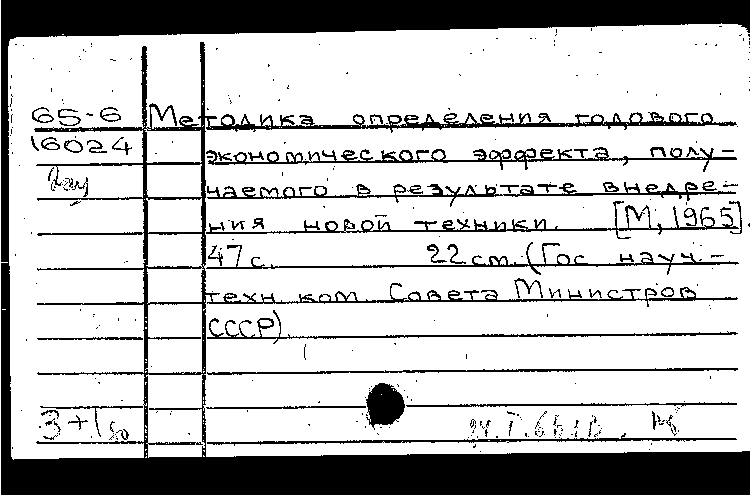 65-6 Методика определения годового
16024 экономического эффекта, полу-
чаемого в результате внедре-
ния новой техники. [М, 1965].
47 с. 22 см. (Гос науч-
техн ком Совета Министров
СССР).
3+1